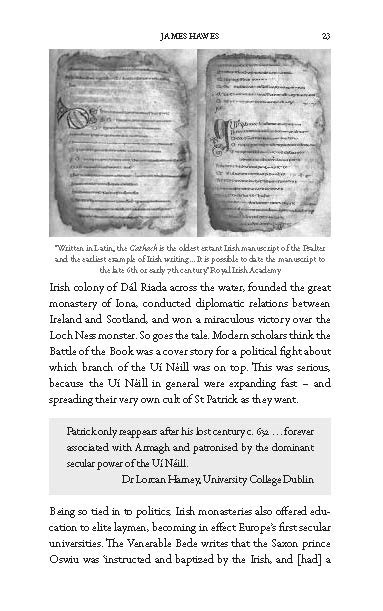 JAMES HAWES 23
"Written in Latin, the Cathach is the oldest extant Irish manuscript of the Psalter
and the earliest example of Irish writing... It is possible to date the manuscript to
the late 6th or early 7th century." Royal Irish Academy
Irish colony of Dál Riada across the water, founded the great
monastery of Iona, conducted diplomatic relations between
Ireland and Scotland, and won a miraculous victory over the
Loch Ness monster. So goes the tale. Modern scholars think the
Battle of the Book was a cover story for a political fight about
which branch of the Uí Néill was on top. This was serious,
because the Uí Néill in general were expanding fast – and
spreading their very own cult of St Patrick as they went.
Patrick only reappears after his lost century c. 632 … forever
associated with Armagh and patronised by the dominant
secular power of the Uí Néill.
Dr Lorcan Harney, University College Dublin
Being so tied in to politics, Irish monasteries also offered edu-
cation to elite laymen, becoming in effect Europe's first secular
universities. The Venerable Bede writes that the Saxon prince
Oswiu was 'instructed and baptized by the Irish, and [had] a